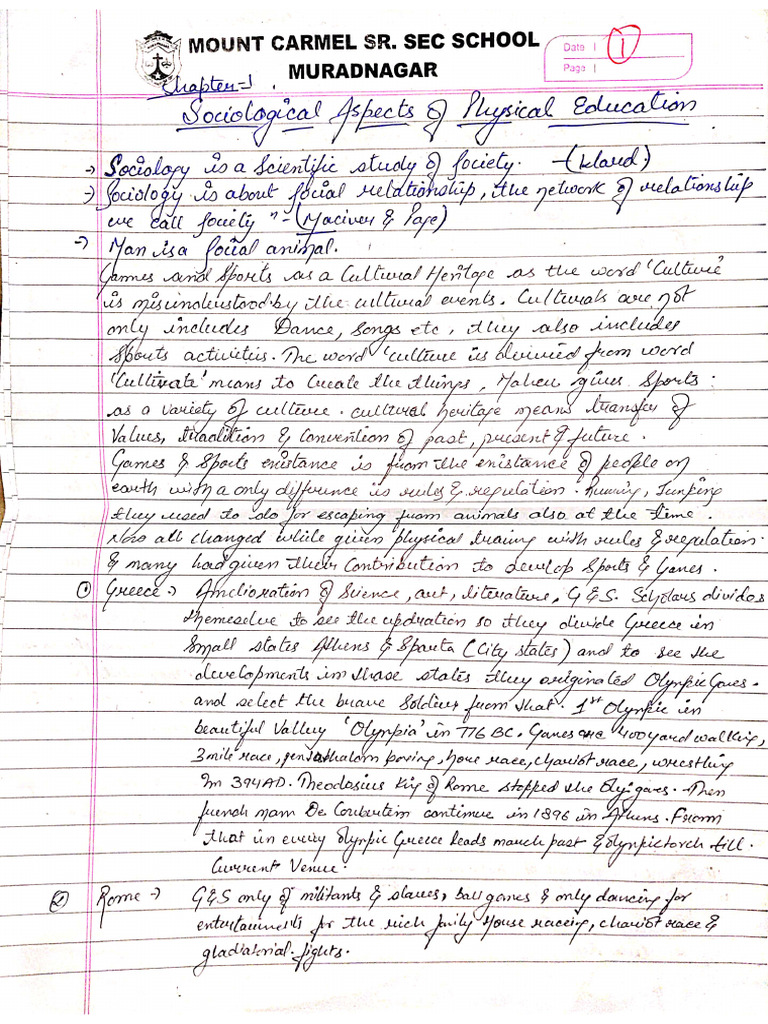 MOUNT CARMEL SR. SEC SCHOOL
MURADNAGAR
Date
Page
1
Chapter-1
Sociological Aspects of Physical Education
→ Sociology is a Scientific study of Society. -(Ward)
→ Sociology is about Social relationship, the network of relationship
we call Society "-(Maciver & Page)
→ Man is a Social animal.
Games and Sports as a Cultural Heritage as the word 'Culture'
is misunderstood by the cultural events. Culturals are not
only includes Dance, Songs etc, they also includes
Sports activities. The word 'culture is derived from word
'Cultivate' means to Create the things, gives Sports
as a variety of culture. Cultural heritage means transfer of
Values, tradition & Convention of past, present & future.
Games & Sports existance is from the existance of people on
earth with a only diffrence is rules & regulation. Running, Jumping
they used to do for escaping from animals also at the time.
Now all changed while given physical traing with rules & regulation
& many had given their Contribution to develop Sports & Games.
① Greece → Amelioration of Science, art, literature, G&S. Scholars divides
themeselve to see the updration so they divide Greece in
Small states Athens & Sparta (City states) and to see the
developments in those states they originated Olympic Games.
and select the brave Soldiers from that. 1st Olympic in
beautiful Valley 'Olympia' in 776 BC. Games are 400 yard walking,
3 mile race, boxing, horse race, chariot race, wrestling
In 394AD. Theodasius King of Rome stopped the Oly. games. Then
french man De Coubertin continue in 1896 in Athens. From
that in every Olympic Greece leads march past & olympic torch till
Current Venue.
② Rome → G&S only of militants & slaves, ball games & only dancing for
entertainments for the rich family House raceing, chariot race &
gladiatorial fights.